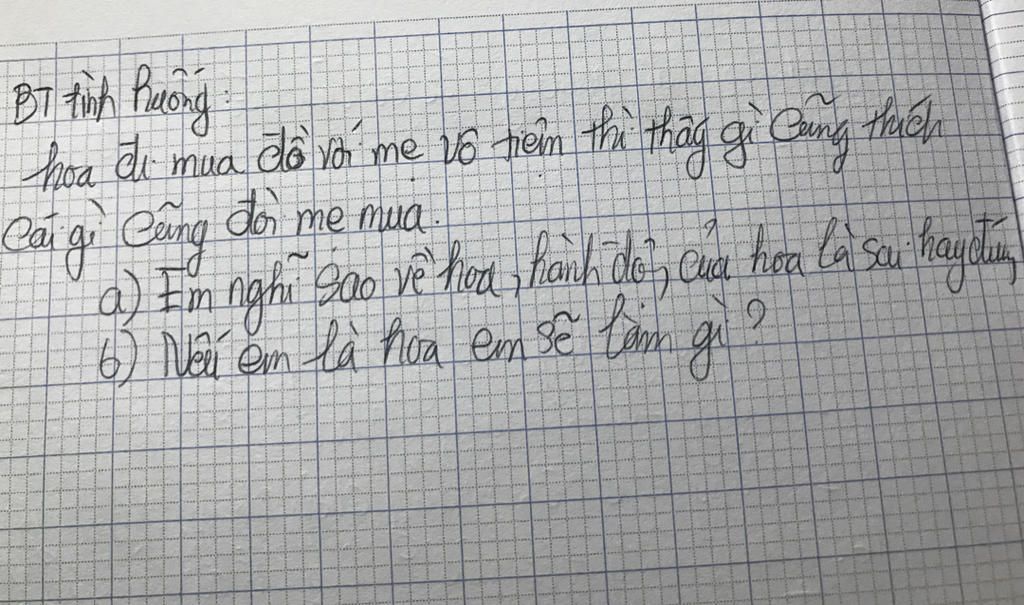 BT tình huống:
hoa đi mua đồ với mẹ vô tiệm thì thấy gì cũng thích
cái gì cũng đòi mẹ mua.
a) Em nghĩ sao về hoa, hành độ, của hoa là sai hay đúng
b) Nếu em là hoa em sẽ làm gì?